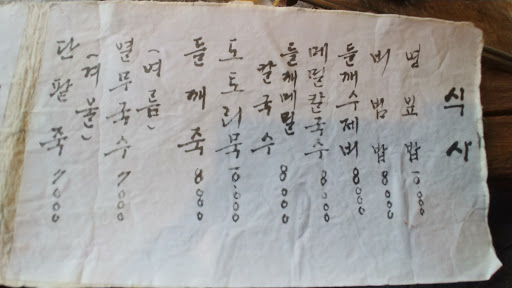 식사
밥 10.000
비빔밥 8000
들깨수제비 8000
메밀칼국수 8000
들깨메밀
칼국수 8000
도토리묵 10.000
들깨죽 8000
(여름)
열무국수 7000
(겨울)
단팥죽 7000